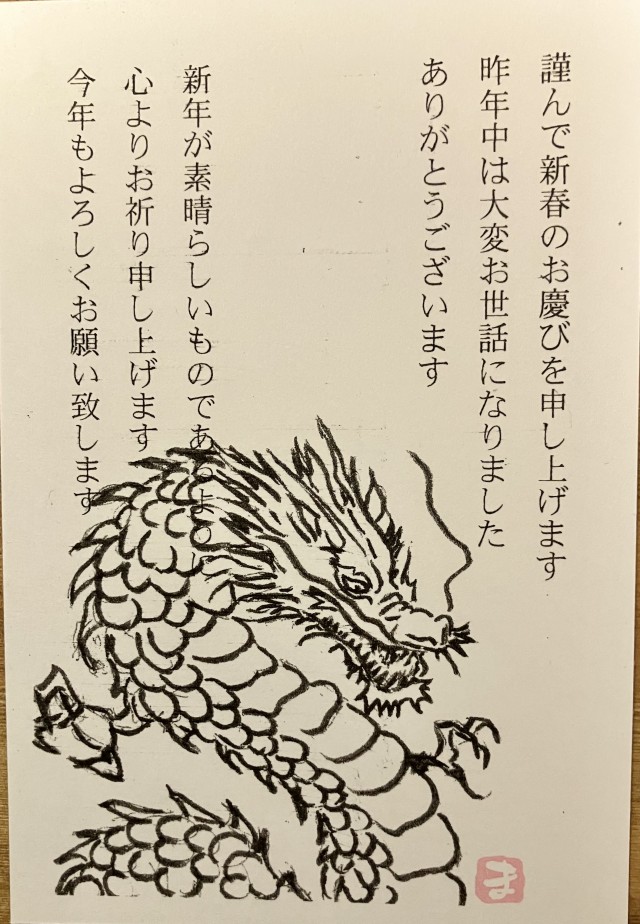 謹んで新春のお慶びを申し上げます
昨年中は大変お世話になりました
ありがとうございます
新年が素晴らしいものであるよう
心よりお祈り申し上げます
今年もよろしくお願い致します
ま